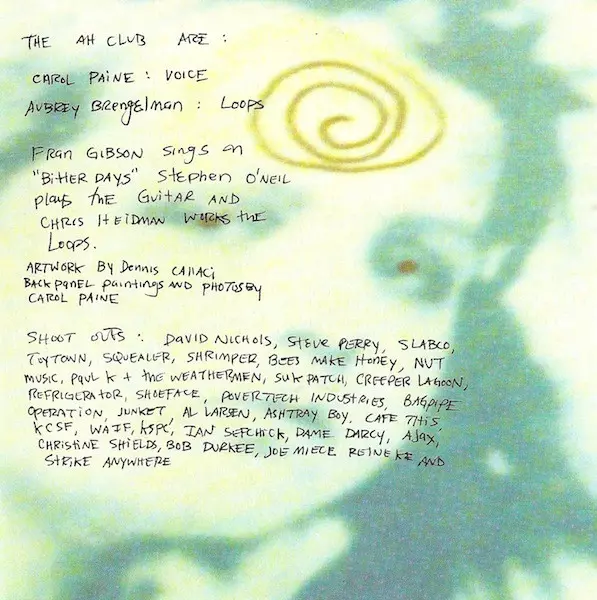 THE AH CLUB ARE :
CAROL PAINE : VOICE
AUBREY BrengElman : Loops
FRan GIBSON sings on
"BiTTER DAYS" Stephen O'NEIL
plays the GuitaR AND
CHRIS HEIDMAN WORKS the
Loops.
ARTWORK By DennIS CAllACi
BACK PANEL paintings AND PHOTOS BY
CAROL PAINE
SHOOT OUTS : DAVID NICHOLS, STEVE PERRY, SLABCO,
TOYTOWN, SQUEALER, SHRIMPER, BEES MAKE HONEY, NUT
MUSIC, PAUL K + the WEATHERMEN, SUKPATCH, CREEPER LAGOON,
REFRIGERATOR, SHOEFACE, POVERTECH INDUSTRIES, BAGPIPE
OPERATION, JUNKET, AL LARSEN, ASHTRAY BOY, CAFE THIS
KCSF, WAIF, KSPC, IAN SEFCHICK, DAME DARCY, AJAX,
CHRISTINE SHIELDS, BOB DURKEE, JOE MIECE REINEKE AND
STRIKE ANYWHERE